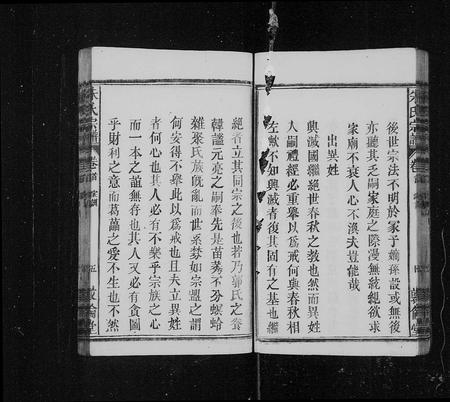 後世宗法不明於家子嫡孫設或無後
亦聽其乏嗣家庭之際漫無統紀欲求
家廟不衰人心不渙夫豈能哉
出異姓
興滅國繼絕世春秋之教也然而異姓
人嗣禮經必重舉以爲戒何與春秋相
左歟不知興滅者復其固有之基也繼
絕者立其同宗之後也若乃郭氏之養
韓謐元亮之嗣奉先是苗莠不分螟蛉
雜眾氏族旣亂而世系棼如宗盟之謂
何安得不舉此以爲戒也且夫立異姓
者何心也其人必有不樂乎宗族之心
而一本之誼無存也其人又必有貪圖
乎財利之意而葛藟之愛不生也不然
朱氏宗譜
卷首
家訓
五
敦倫堂